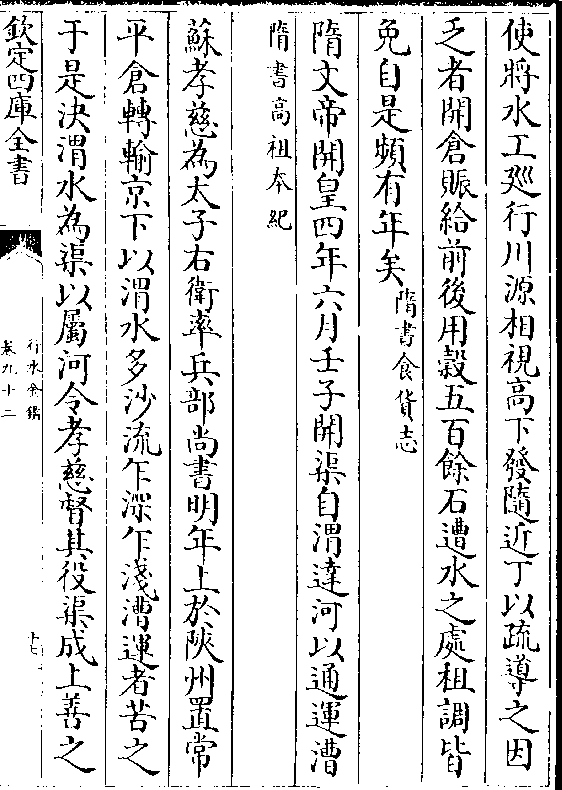 使將水工廵行川源相視高下發隨近丁以疏導之因
乏者開倉賑給前後用穀五百餘石遭水之處租調皆
免自是頻有年矣隋書食貨志
隋文帝開皇四年六月壬子開渠自渭達河以通運漕
隋書高祖本紀
蘇孝慈為太子右衛率兵部尚書明年上於陝州置常
平倉轉輸京下以渭水多沙流乍深乍淺漕運者苦之
于是決渭水為渠以屬河令孝慈督其役渠成上善之
欽定四庫全書
行水金鑑
卷九十二
十七